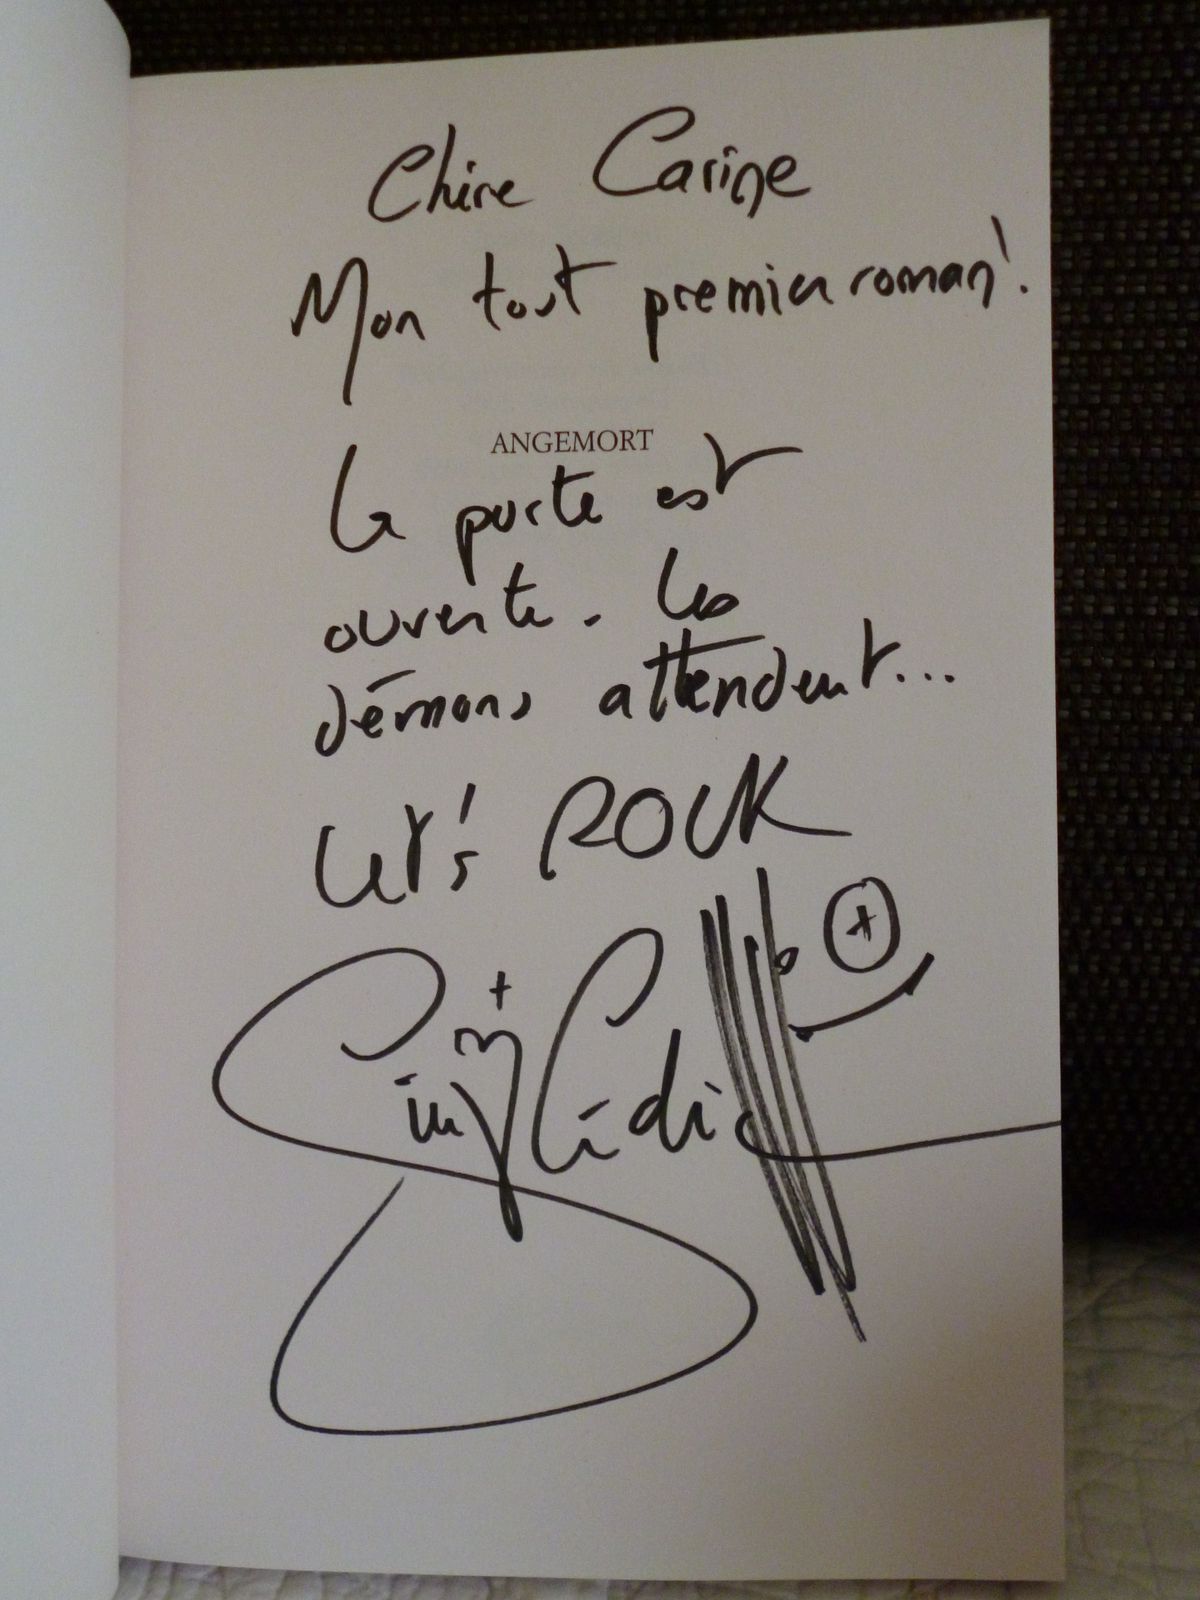 Chère Carine
Mon tout premier roman !
ANGEMORT
La porte est
ouverte. Les
démons attendent...
Let's ROCK
Sire Cédric